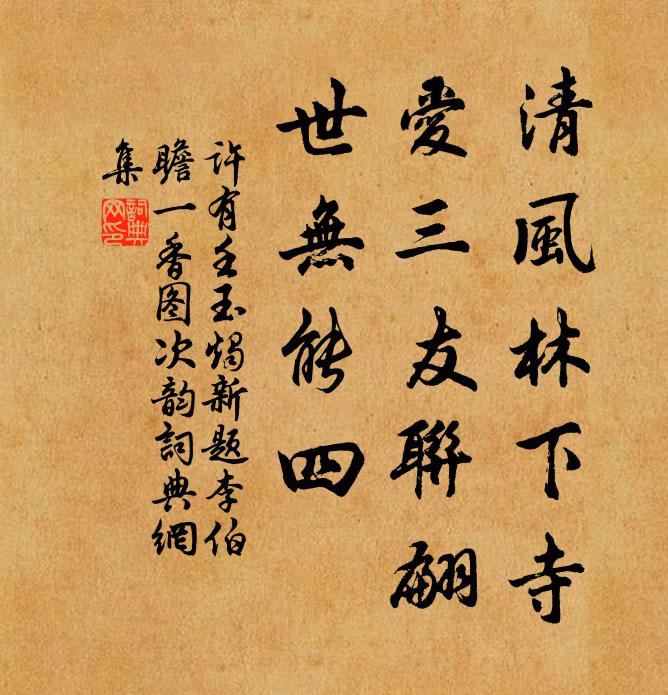 清風林下寺
愛三友聯翩
世無能四
许有壬玉燭新題李伯
瞻一香图次韵詞典網
集
詞典
网印